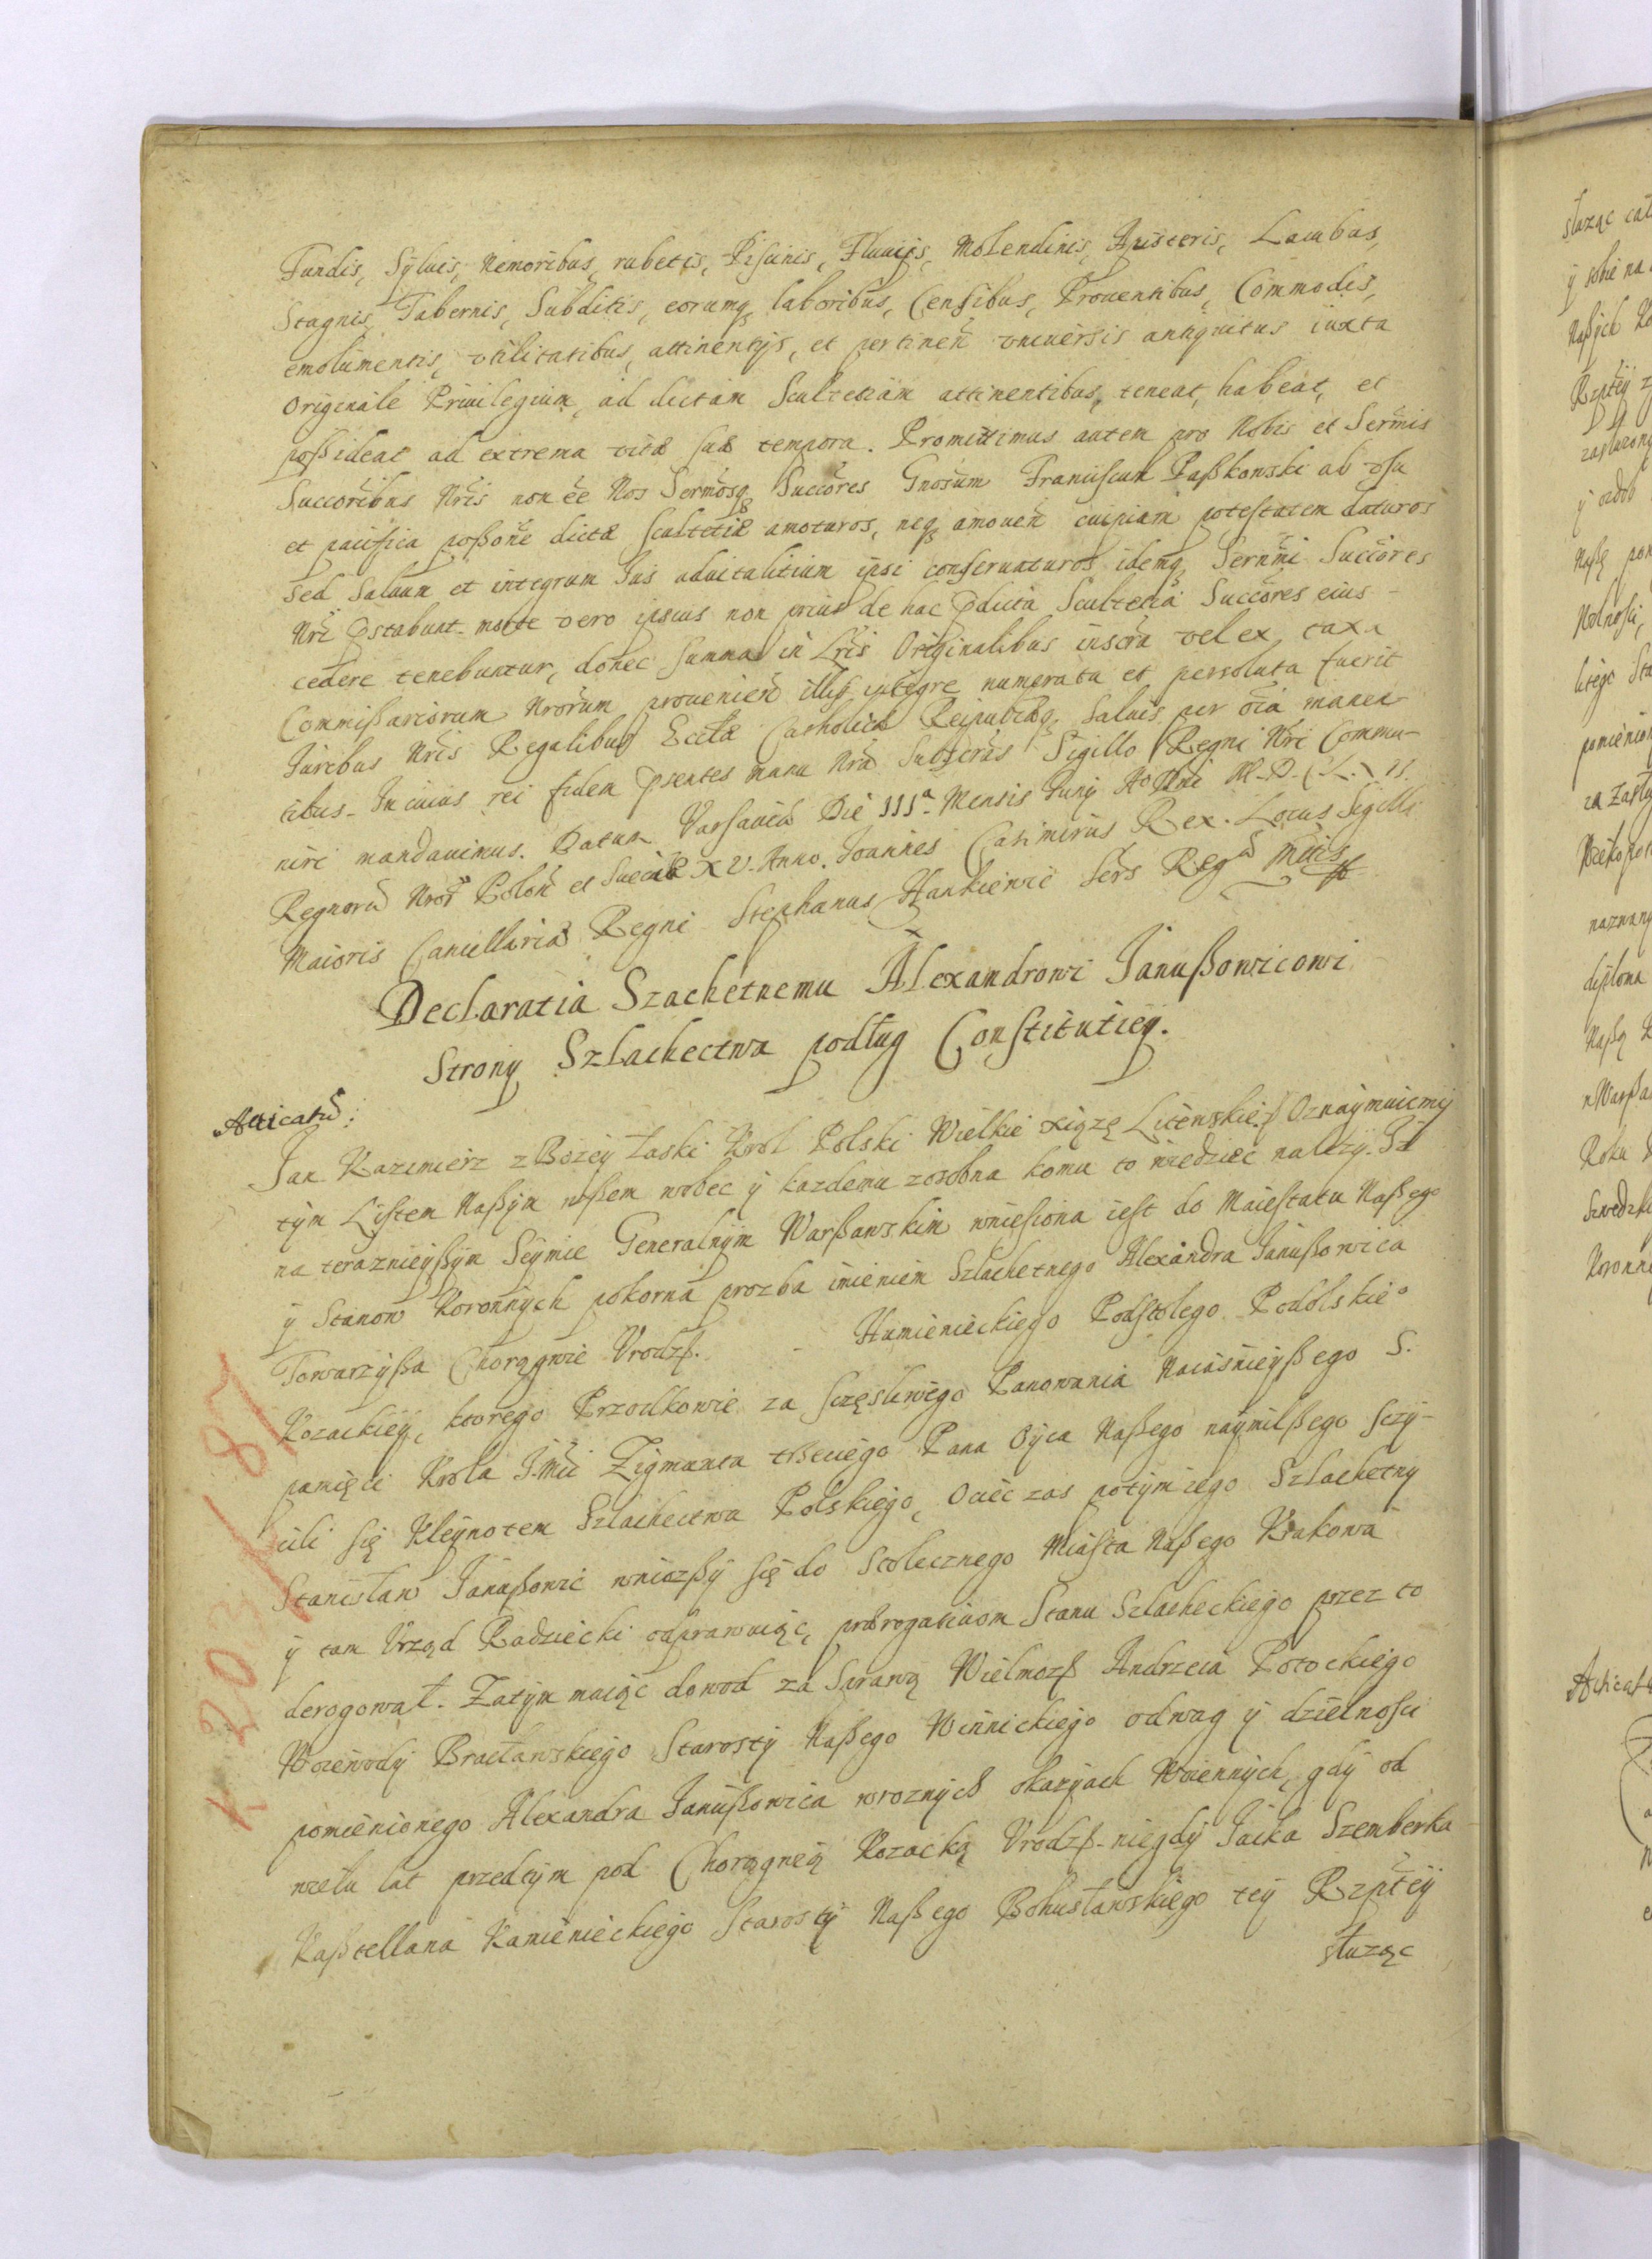 Fundis, Sÿluis, Nemoribus, rubetis, Piscinis, Fluuijs, Molendinis, Lacubus,
Stagnis, Tabernis, Subditis, eorumq laboribus, Censibus, Prouentibus, Commodis,
emolumentis, vtilitatibus, attinentijs, et pertineñ vniuersis antiquitus iuxta
Originale Priuilegium, ad dictam Scultetiam attinentibus, teneat, habeat, et
poßideat ad extrema vitæ suæ tempora. Promittimus autem pro Nobis et Sermis
Succoribus Nris non ee Nos Sermosq Succores Gnosum Franciscum Paßkowski ab vsu
et pacifica poßone dictæ Scultetiæ amoturos, neq amoueñ cuipiam potestatem daturos
Sed Saluum et integrum Ius aduitalitium ipsi conseruaturos idemq Sernmi Succores
Nri pstabunt. morte vero ipsius non prius de hac pdicta Scultetia Succores eius -
cedere tenebuntur, donec summa in Lris Originalibus inscra vel ex taxa
Commißariorum Nrorum proueniens illis integre numerata et persoluta fuerit
Iuribus Nris Regalibus Ecclæ Catholicæ Reipublicæq Saluis per oia manen-
tibus. In cuius rei fidem pntes manu Nra Subscras Sigillo Regni Nri Commu-
niri mandauimus. Datum Varsauiæ Die IIIa Mensis Iunij Ao Dni M.D.C.L.XII.
Regnorũ Nror Poloñ et Sueciæ XV. Anno. Ioannes Casimirus Rex. Locus Sigilli
Maioris Cancellariæ Regni Stephanus Hankiewic Sers Reg Mtis
Declaratia Szachetnemu Alexandrowi Ianußowicowi
Strony Szlachectwa podług Constitutiey.
Acticatũ:
Jan Kazimierz z Bożey łaski Krol Polski Wielkie xiążę Litewskie Oznaymuiemy
tym Listem Naßym wßem wobec y kazdemu zosobna komu to wiedziec nalezy. Iż
na terazniejßym Seymie Generalnym Warßawskim wniesiona iest do Maiestatu Naßego
y Stanow Koronnych pokorna prozba imieniem Szlachetnego Alexandra Ianußowica
Towarzyßa Chorągwie Vrodz. - Humienieckiego Podstolego Podolskieo
Kozackiey, ktorego Przodkowie za sczęsliwego Panowania Naiasnieyßego S.
pamięci Krola JMci Zigmunta trzeciego Pana Oyca Naßego naymilßego sczy-
cili się Kleynotem Szlachectwa Polskiego, Ociec zas potym iego Szlachetny
Stanisław Ianußowic wniozßy się do Stolecznego Miasta Naßego Krakowa
y tam Vrząd Radziecki odprawuiąc, prærogatiuom Stanu Szlacheckiego przez to
derogował. Zatym maiąc dowod za Sprawą Wielmoz Andrzeia Potockiego
Woiewody Bracławskiego Starosty Naßego Winnickiego odwag y dzielnosci
pomienionego Alexandra Ianußowica wroznych okazyach Woiennych, gdy od
wielu lat przedtym pod Chorągwią Kozacką Vrodz. niegdy Iacka Szemberka
Kaßtellana Kamienieckiego Starosty Naßego Bohusławskiego tey Rzpltey
słuząc